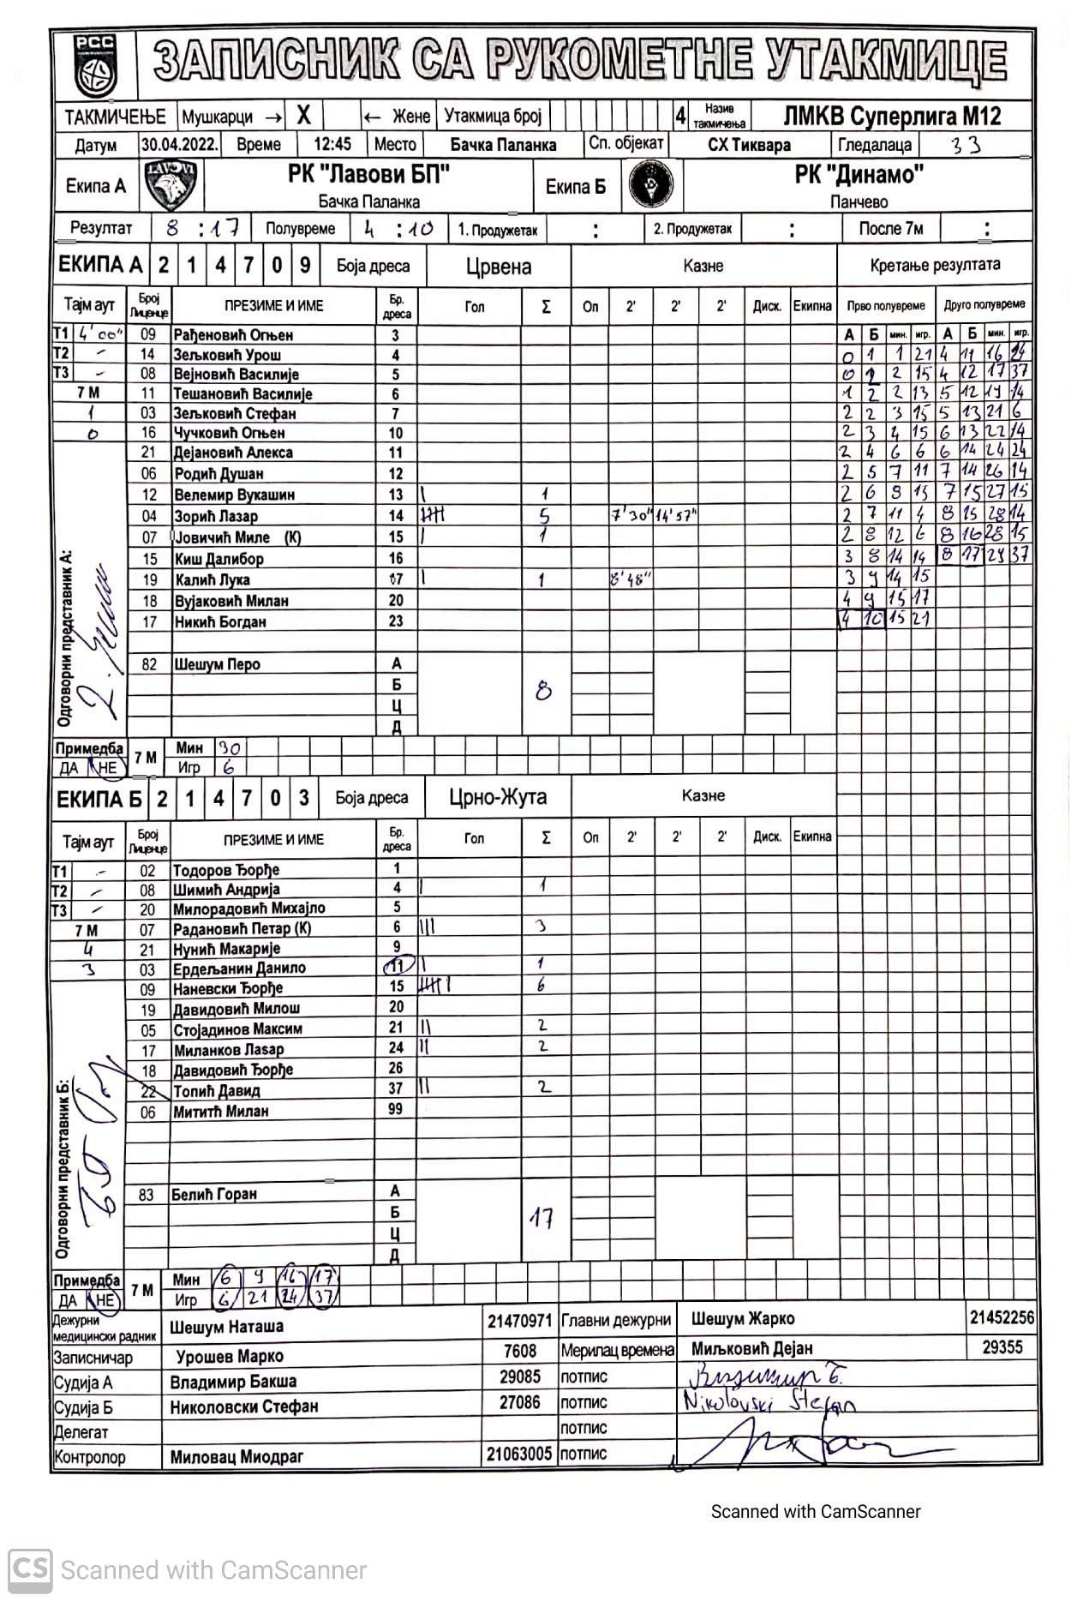 РСС
ЗАПИСНИК СА РУКОМЕТНЕ УТАКМИЦЕ
ТАКМИЧЕЊЕ Мушкарци → X ← Жене Утакмица број 4 Назив такмичења ЛМКВ Суперлига М12
Датум 30.04.2022. Време 12:45 Место Бачка Паланка Сп. објекат СХ Тиквара Гледалаца 33
Екипа А РК "Лавови БП" Бачка Паланка Екипа Б РК "Динамо" Панчево
Резултат 8 : 17 Полувреме 4 : 10 1. Продужетак : 2. Продужетак : После 7м :
ЕКИПА А 2 1 4 7 0 9 Боја дреса Црвена Казне Кретање резултата
Тајм аут Број Лиценце ПРЕЗИМЕ И ИМЕ Бр. дреса Гол Σ Оп 2' 2' 2' Диск. Екипна Прво полувреме Друго полувреме
Т1 4'00" 09 Рађеновић Огњен 3 А Б мин. игр. А Б мин. игр.
Т2 - 14 Зељковић Урош 4 0 1 1 21 4 11 16 24
Т3 - 08 Вејновић Василије 5 0 2 2 15 4 12 17 37
7 М 11 Тешановић Василије 6 1 2 2 13 5 12 19 14
1 03 Зељковић Стефан 7 2 2 3 15 5 13 21 6
0 16 Чучковић Огњен 10 2 3 4 15 6 13 22 14
21 Дејановић Алекса 11 2 4 6 6 6 14 24 24
06 Родић Душан 12 2 5 7 11 7 14 26 14
12 Велемир Вукашин 13 | 1 2 6 9 15 7 15 27 15
04 Зорић Лазар 14 5 7'30" 14'57" 2 7 11 4 8 15 28 14
07 Јовичић Миле (К) 15 | 1 2 8 12 6 8 16 28 15
15 Киш Далибор 16 3 8 14 14 8 17 29 37
19 Калић Лука 17 | 1 8'48" 3 9 14 15
18 Вујаковић Милан 20 4 9 15 17
17 Никић Богдан 23 4 10 15 21
82 Шешум Перо А
Б 8
Ц
Д
Одговорни представник А:
Примедба ДА НЕ 7 М Мин 30
Игр 6
ЕКИПА Б 2 1 4 7 0 3 Боја дреса Црно-Жута Казне
Тајм аут Број Лиценце ПРЕЗИМЕ И ИМЕ Бр. дреса Гол Σ Оп 2' 2' 2' Диск. Екипна
Т1 - 02 Тодоров Ђорђе 1
Т2 - 08 Шимић Андрија 4 | 1
Т3 - 20 Милорадовић Михајло 5
7 М 07 Радановић Петар (К) 6 ||| 3
4 21 Нунић Макарије 9
3 03 Ердељанин Данило 11 | 1
09 Наневски Ђорђе 15 6
19 Давидовић Милош 20
05 Стојадинов Максим 21 || 2
17 Миланков Лазар 24 || 2
18 Давидовић Ђорђе 26
22 Топић Давид 37 || 2
06 Мититћ Милан 99
83 Белић Горан А
Б 17
Ц
Д
Одговорни представник Б:
Примедба ДА НЕ 7 М Мин 6 9 16 17
Игр 6 21 24 37
Дежурни медицински радник Шешум Наташа 21470971 Главни дежурни Шешум Жарко 21452256
Записничар Урошев Марко 7608 Мерилац времена Миљковић Дејан 29355
Судија А Владимир Бакша 29085 потпис Владимир Б.
Судија Б Николовски Стефан 27086 потпис Nikolovski Stefan
Делегат потпис
Контролор Миловац Миодраг 21063005 потпис
Scanned with CamScanner
CS Scanned with CamScanner